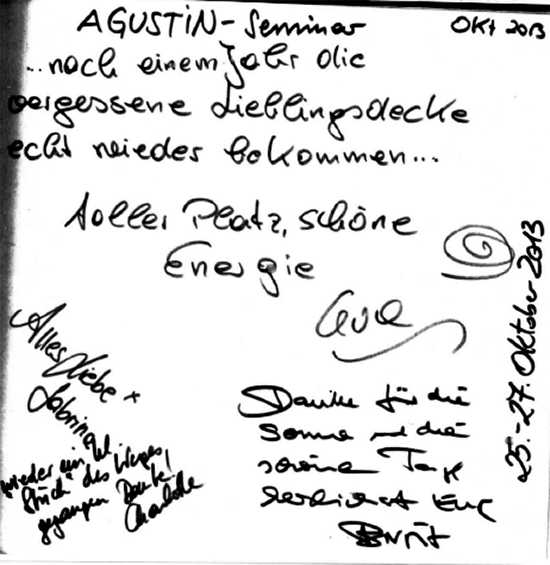 AGUSTIN-Seminar
Okt 2013
...nach einem Jahr die
vergessene Lieblingsdecke
echt wieder bekommen...
toller Platz, schöne
Energie
Eva
25.-27. Oktober 2013
Alles Liebe +
Sabrina
wieder ein
Stück des Weges
gegangen Danke!
Charlotte
Danke für die
Sonne und die
schöne Tage
herzlichst